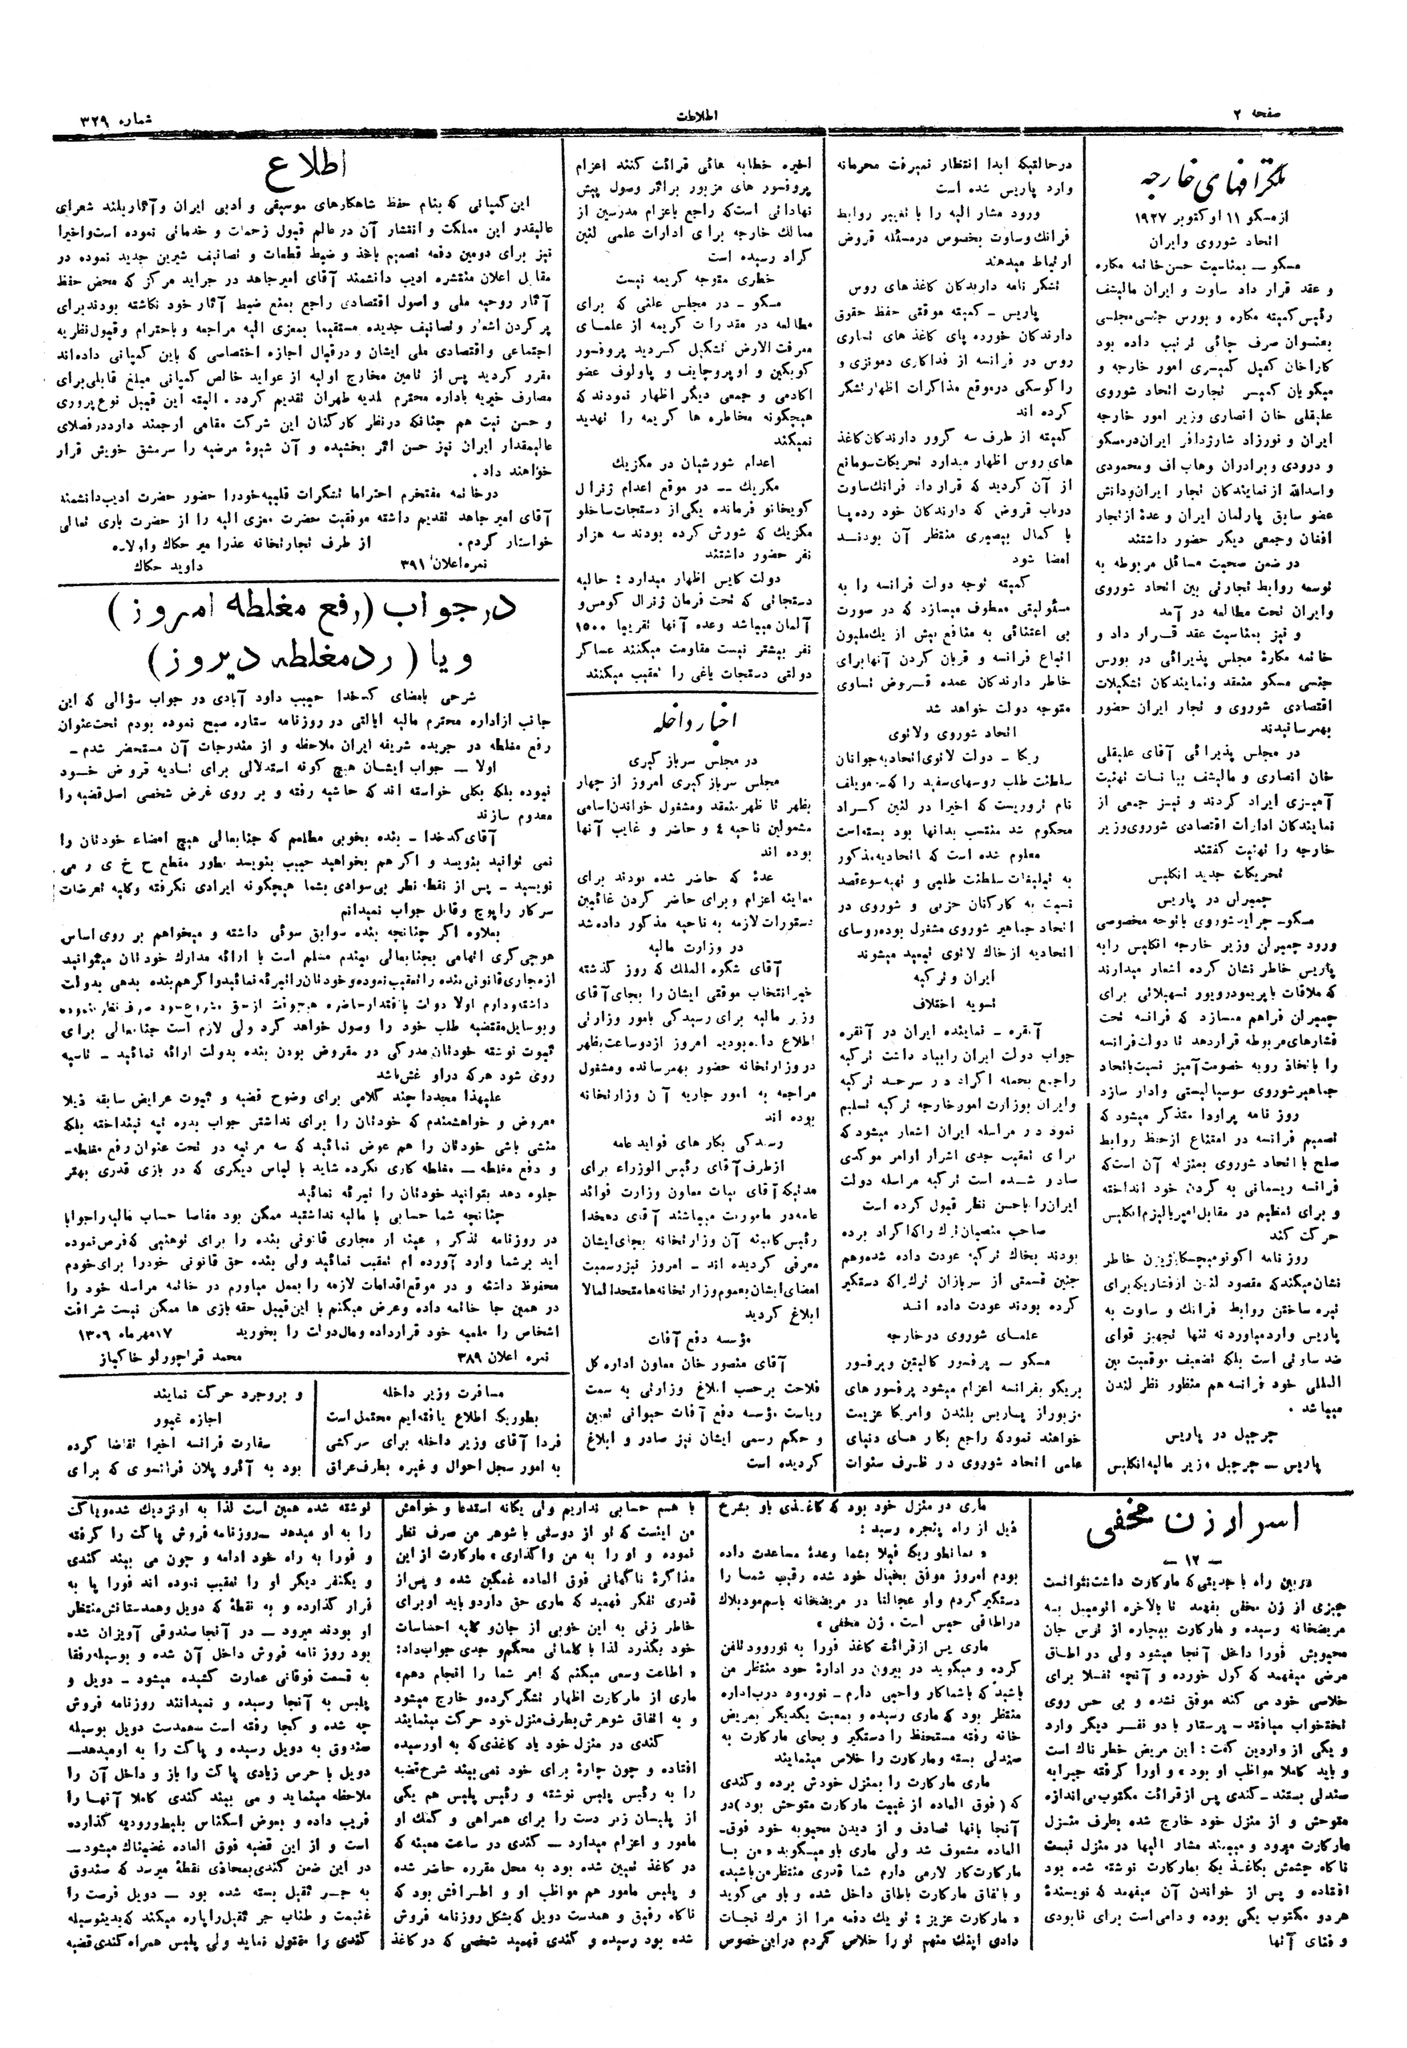 صفحه ۲
اطلاعات
شماره ۳۲۹
تلگرافهای خارجه
از مسکو ۱۱ اوکتوبر ۱۹۲۷
اتحاد شوروی وایران
مسکو — بمناسبت حسن خاتمه مکاره
و عقد قرار داد ساوت و ایران مالیشف
رئیس کمیته مکاره و بورس جنسی مجلسی
بعنوان صرف چائی ترتیب داده بود
کاراخان کفیل کمیسری امور خارجه و
میکویان کمیسر تجارت اتحاد شوروی
علیقلی خان انصاری وزیر امور خارجه
ایران و نورزاد شارژدافر ایران درمسکو
و درودی و برادران وهاب اف ومحمودی
واسدالله از نمایندکان تجار ایران ودانش
عضو سابق پارلمان ایران و عدۀ از تجار
افغان وجمعی دیگر حضور داشتند
در ضمن صحبت مسائل مربوطه به
توسعه روابط تجارتی بین اتحاد شوروی
وایران تحت مطالعه در آمد
و نیز بمناسبت عقد قرار داد و
خاتمه مکارۀ مجلس پذیرائی در بورس
جنسی مسکو منعقد ونمایندکان تشکیلات
اقتصادی شوروی و تجار ایران حضور
بهمرسانیدند
در مجلس پذیرائی آقای علیقلی
خان انصاری و مالیشف بیانات تهنیت
آمیزی ایراد کردند و نیز جمعی از
نمایندکان ادارات اقتصادی شوروی وزیر
خارجه را تهنیت کفتند
تحریکات جدید انکلیس
چمبرلن در پاریس
مسکو— جراید شوروی باتوجه مخصوصی
ورود چمبرلن وزیر خارجه انکلیس رابه
پاریس خاطر نشان کرده اشعار میدارند
که ملاقات با پریمودریور تسهیلاتی برای
چمبرلن فراهم میسازد که فرانسه تحت
فشارهای مربوطه قراردهد تا دولت فرانسه
را باتخاذ رویه خصومت آمیز نسبت باتحاد
جماهیرشوروی سوسیالیستی وادار سازد
روز نامه پراودا متذکر میشود که
تصمیم فرانسه در امتناع ازحفظ روابط
صلح با اتحاد شوروی بمنزله آن است که
فرانسه ریسمانی به کردن خود انداخته
و برای تعظیم در مقابل امپریالیزم انکلیس
حرکت کند
روز نامه اکونومیچسکایژیزن خاطر
نشان میکند که مقصود لندن ازفشاریکه برای
تیره ساختن روابط فرانك و ساوت به
پاریس وارد میاورد نه تنها تجهیز قوای
ضد ساوتی است بلکه تضعیف موقعیت بین
المللی خود فرانسه هم منظور نظر لندن
میباشد .
چرچیل در پاریس
پاریس — چرچیل وزیر مالیه انکلیس
درحالتیکه ابدا انتظار نمیرفت محرمانه
وارد پاریس شده است
ورود مشار الیه را با تغییر روابط
فرانك وساوت بخصوص درمسئله قروض
ارتباط میدهند
تشکر نامه دارندکان کاغذ های روس
پاریس — کمیته موقتی حفظ حقوق
دارندکان خورده پای کاغذ های تجاری
روس در فرانسه از فداکاری دمونزی و
راکوسکی درموقع مذاکرات اظهار تشکر
کرده اند
کمیته از طرف سه کرور دارندکان کاغذ
های روس اظهار میدارد تحریکات سو مانع
از آن کردید که قرار داد فرانك ساوت
درباب قروض که دارندکان خود رده پا
با کمال بیصبری منتظر آن بودند
امضا شود
کمیته توجه دولت فرانسه را به
مسئولیتی معطوف میسازد که در صورت
بی اعتنائی به منافع بیش از یك ملیون
اتباع فرانسه و قربان کردن آنها برای
خاطر دارندکان عمده قروض تساوی
متوجه دولت خواهد شد
اتحاد شوروی ولاتوی
ریکا — دولت لاتوی اتحادیه جوانان
سلطنت طلب روسهای سفید را که مویلف
نام تروریست که اخیرا در لنین کراد
محکوم شد منتسب بدانها بود بسته است
معلوم شده است که اتحادیه مذکور
به تبلیغات سلطنت طلبی و تهیه سوءقصد
نسبت به کارکنان حزبی و شوروی در
اتحاد جماهیر شوروی مشغول بوده روسای
اتحادیه از خاك لاتوی تبعید میشوند
ایران و ترکیه
تسویه اختلاف
آنقره — نماینده ایران در آنقره
جواب دولت ایران رابیاد داشت ترکیه
راجع بحمله اکراد در سرحد ترکیه
وایران بوزارت امور خارجه ترکیه تسلیم
نمود در مراسله ایران اشعار میشود که
برای تعقیب جدی اشرار اوامر موکدی
صادر شده است ترکیه مراسله دولت
ایران را باحسن نظر قبول کرده است
صاحب منصبان ترك را که اکراد برده
بودند بخاك ترکیه عودت داده شده وهم
چنین قسمتی از سربازان ترك را که دستگیر
کرده بودند عودت داده اند
علمای شوروی درخارجه
مسکو — پرفسور کالیتین و پرفسور
بریکو بفرانسه اعزام میشود پرفسور های
مزبور از پاریس بلندن وامریکا عزیمت
خواهند نمود که راجع بکار های دنیای
علمی اتحاد شوروی در ظرف سنوات
اخیره خطابه هائی قرائت کنند اعزام
پروفسور های مزبور براثر وصول پیش
نهاداتی است که راجع باعزام مدرسین از
ممالك خارجه برای ادارات علمی لنین
کراد رسیده است
خطری متوجه کریمه نیست
مسکو — در مجلس علنی که برای
مطالعه در مقدرات کریمه از علمای
معرفت الارض تشکیل کردید پروفسور
کوبکین و اوپروچایف و پاولوف عضو
اکادمی و جمعی دیگر اظهار نمودند که
هیچگونه مخاطره ها کریمه را تهدید
نمیکند
اعدام شورشیان در مکزیك
مکزیك — در موقع اعدام ژنرال
کویخانو فرمانده یکی از دستجات ساخلو
مکزیك که شورش کرده بودند سه هزار
نفر حضور داشتند
دولت کایس اظهار میدارد : حالیه
دستجاتی که تحت فرمان ژنرال کومس و
آلمان میباشد وعده آنها تقریبا ۱۵۰۰
نفر بیشتر نیست مقاومت میکنند عساکر
دولتی دستجات یاغی را تعقیب میکنند
اخبار داخله
در مجلس سرباز کیری
مجلس سرباز کیری امروز از چهار
بظهر تا ظهر منعقد ومشغول خواندن اسامی
مشمولین ناحیه ٤ و حاضر و غایب آنها
بوده اند
عدۀ که حاضر شده بودند برای
معاینه اعزام و برای حاضر کردن غائبین
دستورات لازمه به ناحیه مذکور داده شد
در وزارت مالیه
آقای شکوه الملك که روز گذشته
خبر انتخاب موقتی ایشان را بجای آقای
وزیر مالیه برای رسیدکی بامور وزارتی
اطلاع داده بودیم امروز ازدو ساعت بظهر
در وزارتخانه حضور بهمرسانده و مشغول
مراجعه به امور جاریه آن وزارتخانه
بوده اند
رسیدکی بکار های فواید عامه
از طرف آقای رئیس الوزراء برای
مدتیکه آقای بیات معاون وزارت فوائد
عامه در ماموریت میباشند آقای دهخدا
رئیس کابینه آن وزارتخانه بجای ایشان
معرفی کردیده اند — امروز نیز رسمیت
امضای ایشان بعموم وزارتخانه ها متحدالمالا
ابلاغ کردید
مؤسسه دفع آفات
آقای منصور خان معاون اداره کل
فلاحت برحسب ابلاغ وزارتی به سمت
ریاست مؤسسه دفع آفات حیوانی تعیین
و حکم رسمی ایشان نیز صادر و ابلاغ
کردیده است
اطلاع
این کمپانی که بنام حفظ شاهکارهای موسیقی و ادبی ایران و آثار بلند شعرای
عالیقدر این مملکت و انتشار آن در عالم قبول زحمات و خدماتی نموده است واخیرا
نیز برای دومین دفعه تصمیم باخذ و ضبط قطعات و تصانیف شیرین جدید نموده در
مقابل اعلان منتشره ادیب دانشمند آقای امیرجاهد در جراید مرکز که محض حفظ
آثار روحیه ملی و اصول اقتصادی راجع بمنع ضبط آثار خود نکاشته بودند برای
پر کردن اشعار و تصانیف جدیده مستقیما بمعزی الیه مراجعه و با احترام وقبول نظریه
اجتماعی واقتصادی ملی ایشان و درقبال اجازه اختصاصی که باین کمپانی داده اند
مقرر کردید پس از تامین مخارج اولیه از عواید خالص کمپانی مبلغ قابلی برای
مصارف خیریه باداره محترم بلدیه طهران تقدیم کردد . البته این قبیل نوع پروری
و حسن نیت هم چنانکه درنظر کارکنان این شرکت مقامی ارجمند دارد در فضلای
عالیمقدار ایران نیز حسن اثر بخشیده و آن شیوۀ مرضیه را سرمشق خویش قرار
خواهند داد .
درخاتمه مفتخرم احتراما تشکرات قلبیه خودرا حضور حضرت ادیب دانشمند
آقای امیر جاهد تقدیم داشته موفقیت حضرت معزی الیه را از حضرت باری تعالی
خواستار کردم . از طرف تجارتخانه عذرا میر حکاك واولاده
نمره اعلان ۳۹۱ داوید حکاك
در جواب (رفع مغلطه امروز)
ویا (رد مغلطه دیروز)
شرحی بامضای کدخدا حبیب داود آبادی در جواب سؤالی که این
جانب ازاداره محترم مالیه ایالتی در روزنامه ستاره صبح نموده بودم تحت عنوان
رفع مغلطه در جریده شریفه ایران ملاحظه و از مندرجات آن مستحضر شدم —
اولا — جواب ایشان هیچ کونه استدلالی برای تادیه قروض خود
نبوده بلکه بکلی خواسته اند که حاشیه رفته و بر روی غرض شخصی اصل قضیه را
معدوم سازند
آقای کدخدا — بنده بخوبی مطلعم که جنابعالی هیچ امضاء خودتان را
نمی توانید بنویسد و اکر هم بخواهید حبیب بنویسد بطور مقطع ح خ ی ر می
نویسید — پس از نقطه نظر بی سوادی بشما هیچگونه ایرادی نگرفته وکلیه تعرضات
سرکار را پوچ وقابل جواب نمیدانم
بعلاوه اکر چنانچه بنده سوابق سوئی داشته و میخواهم بر روی اساس
هوچی کری اتهامی بجنابعالی ببندم مسلم است با ارائه مدارك خودتان میتوانید
از مجاری قانونی بنده را تعقیب نموده و خودتان را تبرئه نمائید و اکرهم بنده بدهی بدولت
داشته و دارم اولا دولت با اقتدار حاضره هیچوقت از حق مشروع خود صرف نظر ننموده
وبوسایل مقتضیه طلب خود را وصول خواهد کرد ولی لازم است جنابعالی برای
ثبوت نوشته خودتان مدرکی در مقروض بودن بنده بدولت ارائه نمائید — تاسیه
روی شود هرکه دراو غش باشد
علیهذا مجددا چند کلامی برای وضوح قضیه و ثبوت عرایض سابقه ذیلا
معروض و خواهشمندم که خودتان را برای نداشتن جواب بدره تیه نینداخته بلکه
منشی باشی خودتان را هم عوض نمائید که سه مرتبه در تحت عنوان رفع مغلطه —
و دفع مغلطه — مغلطه کاری نکرده شاید با لباس دیگری که در بازی قدری بهتر
جلوه دهد بتوانید خودتان را تبرئه نمائید
چنانچه شما حسابی با مالیه نداشتید ممکن بود مفاصا حساب مالیه راجوابا
در روزنامه تذکر و عینا از مجاری قانونی بنده را برای توهینی که فرض نموده
اید برشما وارد آورده ام تعقیب نمائید ولی بنده حق قانونی خودرا برای خودم
محفوظ داشته و در موقع اقدامات لازمه را بعمل میاورم در خاتمه مراسله خود را
در همین جا خاتمه داده وعرض میکنم با این قبیل حقه بازی ها ممکن نیست شرافت
اشخاص را ملعبه خود قرارداده و مال دولت را بخورید ۱۷ مهر ماه ۱۳۰۶
نمره اعلان ۳۸۹ محمد قراچورلو خاکپاز
مسافرت وزیر داخله
بطوریکه اطلاع یافته ایم محتمل است
فردا آقای وزیر داخله برای سرکشی
به امور سجل احوال و غیره بطرف عراق
و بروجرد حرکت نمایند
اجازه عبور
سفارت فرانسه اخیرا تقاضا کرده
بود به آئرو پلان فرانسوی که برای
اسرار زن مخفی
— ۱۲ —
در بین راه با جدیتی که مارکارت داشت نتوانست
چیزی از زن مخفی بفهمد تا بالاخره اتومبیل به
مریضخانه رسیده و مارکارت بیچاره از ترس جان
محبوبش فورا داخل آنجا میشود ولی در اطاق
مرضی میفهمد که کول خورده و آنچه تقلا برای
خلاصی خود می کند موفق نشده و بی حس روی
تختخواب میافتد — پرستار با دو نفر دیگر وارد
و یکی از واردین کفت : این مریض خطر ناك است
و باید کاملا مواظب او بود » و اورا کرفته جبرا به
صندلی بستند — کندی پس از قرائت مکتوب بی اندازه
متوحش و از منزل خود خارج شده بطرف منزل
مارکارت میرود و میبیند مشار الیها در منزل نیست
ناکاه چشمش بکاغذیکه بمارکارت نوشته شده بود
افتاده و پس از خواندن آن میفهمد که نویسندۀ
هردو مکتوب یکی بوده و دامی است برای نابودی
و فنای آنها
ماری در منزل خود بود که کاغذی باو بشرح
ذیل از راه پنجره رسید :
« همانطوریکه قبلا بشما وعدۀ مساعدت داده
بودم امروز موفق بخیال خود شده رقیب شما را
دستگیر کردم واو عجالتا در مریضخانه باسم مودبلاك
دراطاقی حبس است . زن مخفی »
ماری پس ازقرائت کاغذ فورا به نوروود تلفن
کرده و میکوید در بیرون در ادارۀ خود منتظر من
باشید که باشما کار واجبی دارم — نوروود درب اداره
منتظر بود که ماری رسیده و بمعیت یکدیگر بمریض
خانه رفته مستحفظ را دستگیر و بجای مارکارت به
صندلی بسته ومارکارت را خلاص مینمایند
ماری مارکارت را بمنزل خودش برده و کندی
که (فوق العاده از غیبت مارکارت متوحش بود) در
آنجا بآنها تصادف و از دیدن محبوبه خود فوق
العاده مشعوف شد ولی ماری باو میکوید «من با
مارکارت کار لازمی دارم شما قدری منتظر من باشید»
و باتفاق مارکارت باطاق داخل شده و باو می کوید
« مارکارت عزیز : تو یك دفعه مرا از مرك نجات
دادی اینك منهم تو را خلاص کردم دراین خصوص
با هم حسابی نداریم ولی یکانه استدعا و خواهش
من اینست که تو از دوستی با شوهر من صرف نظر
نموده و او را به من واگذاری » مارکارت از این
مذاکرۀ ناکهانی فوق العاده غمگین شده و پس از
قدری تفکر فهمید که ماری حق دارد و باید او برای
خاطر زنی به این خوبی از جان و کلیه احساسات
خود بگذرد لذا با کلماتی محکم و جدی جواب داد :
« اطاعت وسعی میکنم که امر شما را انجام دهم »
ماری از مارکارت اظهار تشکر کرده و خارج میشود
و به اتفاق شوهرش بطرف منزل خود حرکت مینمایند
کندی در منزل خود یاد کاغذی که به او رسیده
افتاده و چون چارۀ برای خود نمی بیند شرح قضیه
را به رئیس پلیس نوشته و رئیس پلیس هم یکی
از پلیسان زبر دست را برای همراهی و کمك او
مامور و اعزام میدارد — کندی در ساعت معینه که
در کاغذ تعیین شده بود به محل مقرره حاضر شده
و پلیس مامور هم مواظب او و اطرافش بود که
ناکاه رفیق و همدست دویل که بشکل روزنامه فروش
شده بود رسیده و کندی فهمید شخصی که در کاغذ
نوشته شده همین است لذا به او نزدیك شده و پاکت
را به او میدهد — روزنامه فروش پاکت را گرفته
و فورا به راه خود ادامه و چون می بیند کندی
و یکنفر دیگر او را تعقیب نموده اند فورا پا به
فرار گذارده و به نقطۀ که دویل وهمدستانش منتظر
او بودند میرود — در آنجا صندوقی آویزان شده
بود روز نامه فروش داخل آن شده و بوسیله رفقا
به قسمت فوقانی عمارت کشیده میشود — دویل و
پلیس به آنجا رسیده و نمیدانند روزنامه فروش
چه شده و کجا رفته است همدست دویل بوسیله
صندوق به دویل رسیده و پاکت را به او میدهد —
دویل با حرص زیادی پاکت را باز و داخل آن را
ملاحظه مینماید و می بیند کندی کاملا آنها را
فریب داده و بعوض اسکناس بلیط ورودیه گذارده
است و از این قضیه فوق العاده غضبناك میشود —
در این ضمن کندی بمحاذی نقطۀ میرسد که صندوق
به جر ثقیل بسته شده بود — دویل فرصت را
غنیمت و طناب جر ثقیل را پاره میکند که بدینوسیله
کندی را مقتول نماید ولی پلیس همراه کندی قضیه